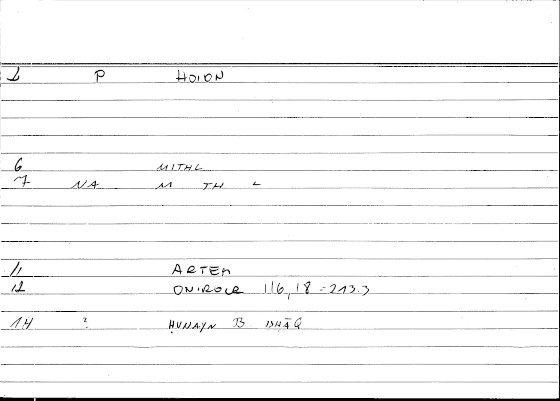 1 P HOION
6 MITHL
7 NA M TH L
11 ARTEM
12 ONIROCR 116,18 = 213.3
14 ? ḤUNAYN B ISḤĀQ